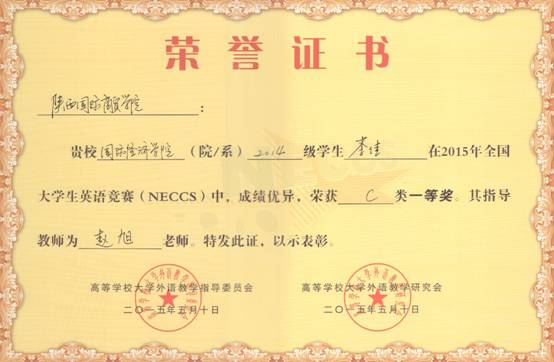 荣誉证书
陕西国际商贸学院：
贵校国际经济学院（院/系）2014级学生李佳在2015年全国
大学生英语竞赛（NECCS）中，成绩优异，荣获C类一等奖。其指导
教师为赵旭老师。特发此证，以示表彰。
高等学校大学外语教学指导委员会 高等学校大学外语教学研究会
二〇一五年五月十日 二〇一五年五月十日